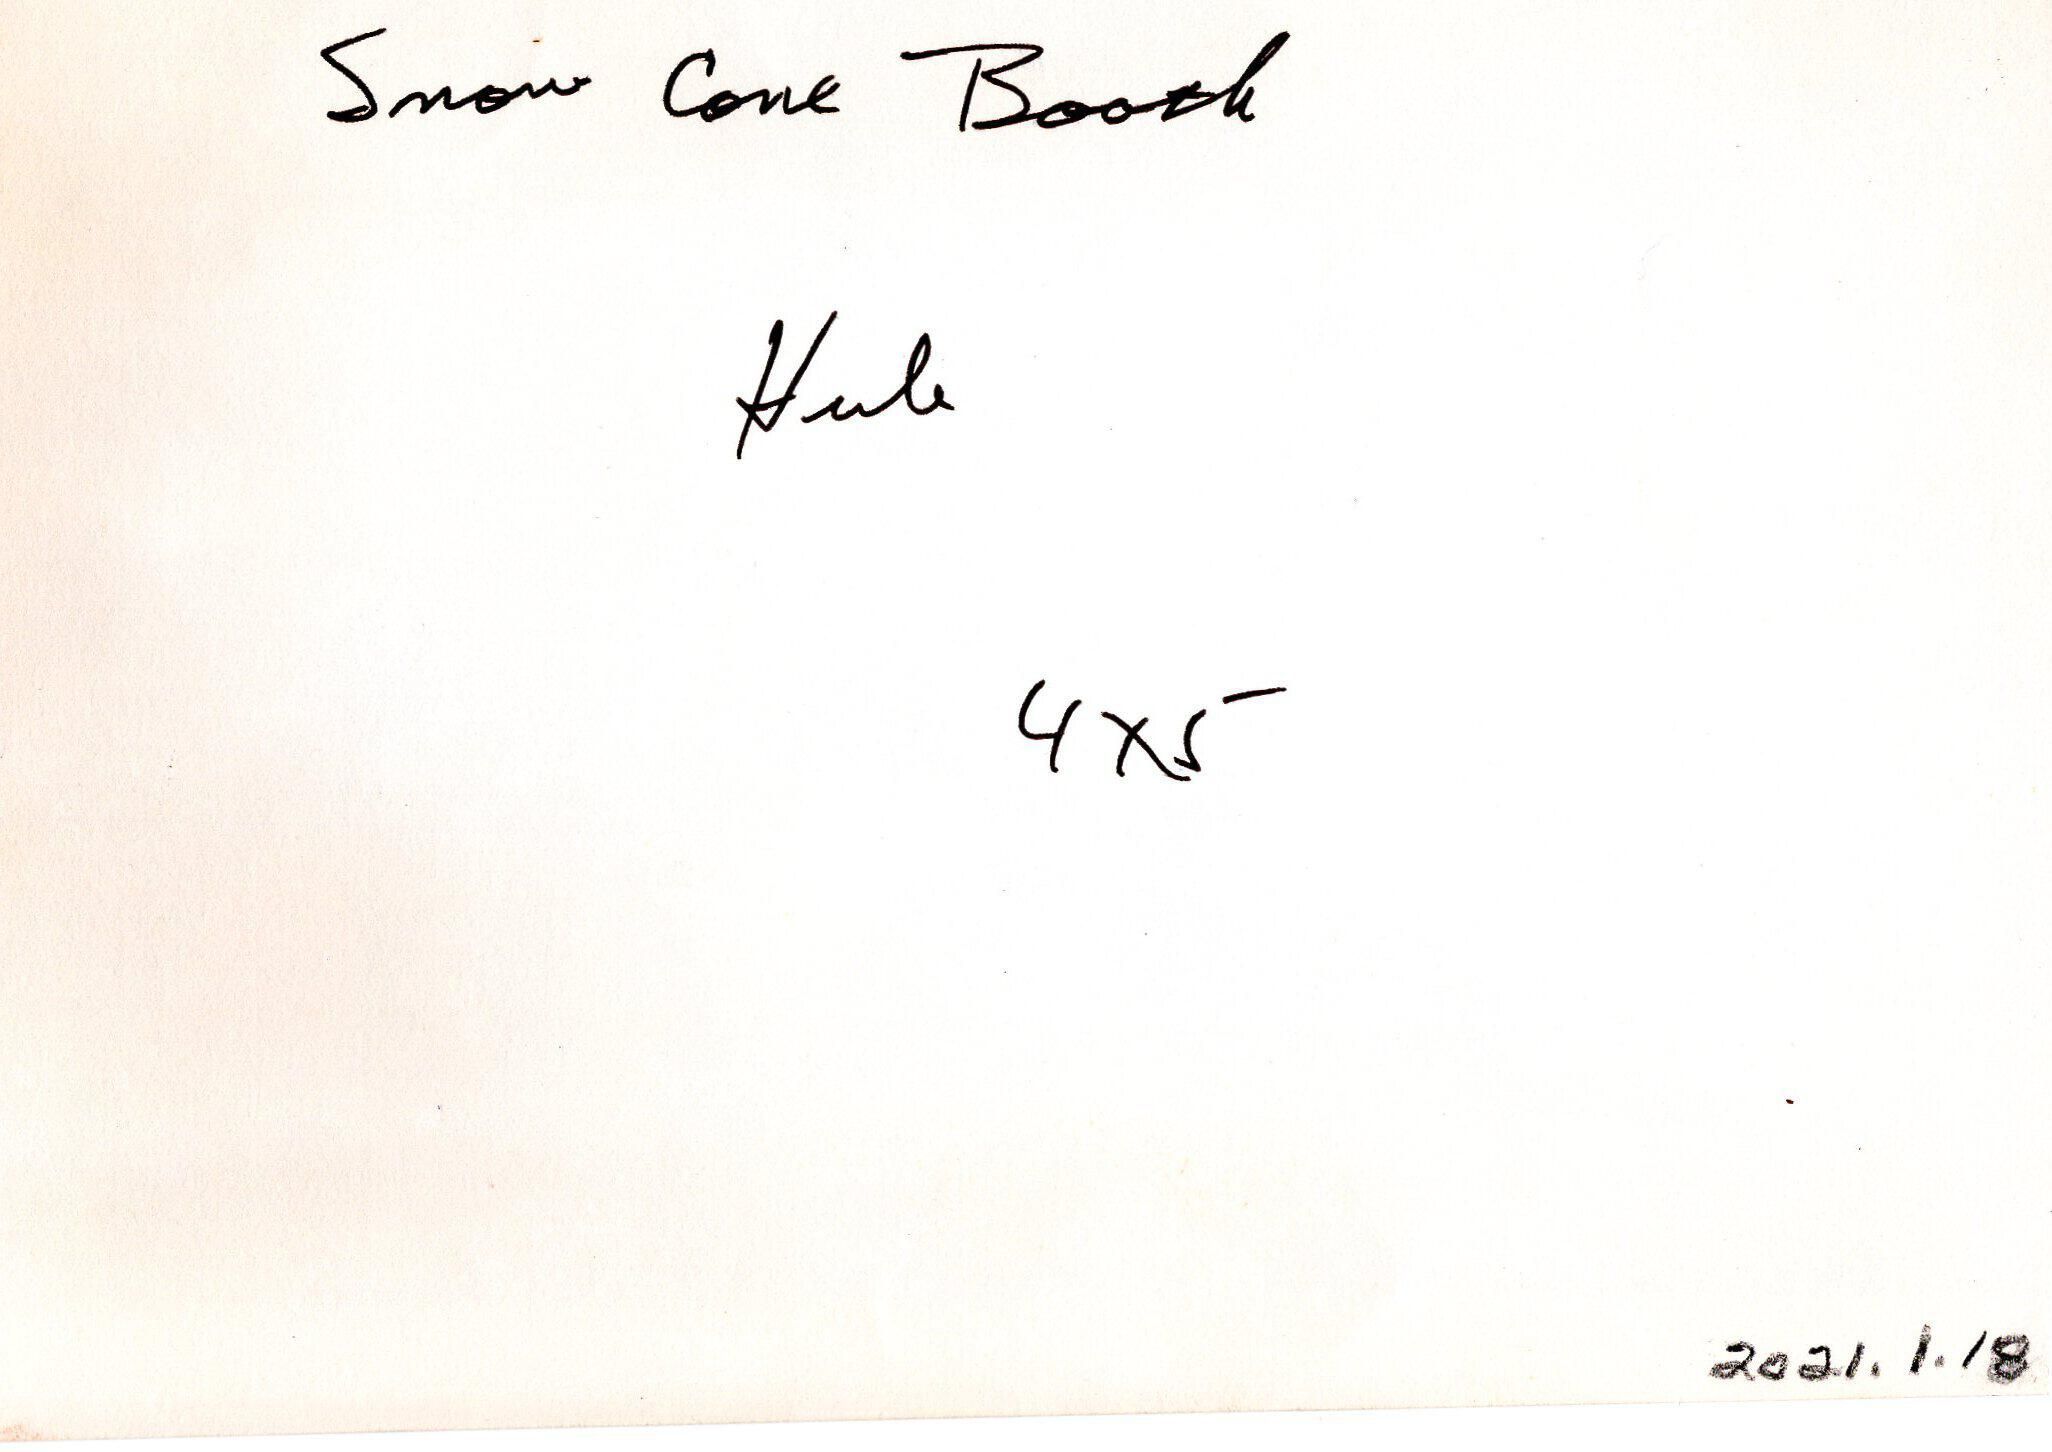 Snow Cone Booth
4x5
2021.1.18